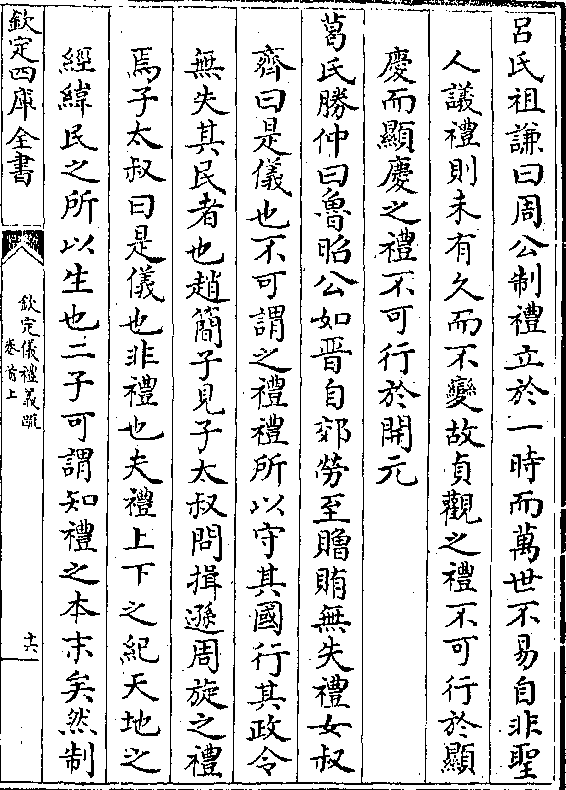 呂氏祖謙曰周公制禮立於一時而萬世不易自非聖
人議禮則未有久而不變故貞觀之禮不可行於顯
慶而顯慶之禮不可行於開元
葛氏勝仲曰魯昭公如晋自郊勞至贈賄無失禮女叔
齊曰是儀也不可謂之禮禮所以守其國行其政令
無失其民者也趙簡子見子太叔問揖遜周旋之禮
焉子太叔曰是儀也非禮也夫禮上下之紀天地之
經緯民之所以生也二子可謂知禮之本末矣然制
欽定四庫全書
欽定儀禮義疏
卷首上
十六